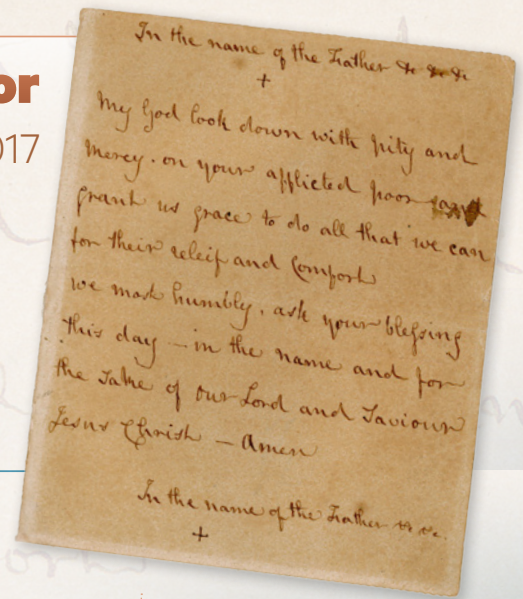 or
017
In the name of the Father &c &c &c
+
My God look down with pity and
Mercy. on your afflicted poor and
grant us grace to do all that we can
for their releif and Comfort
we most humbly, ask your blessing
this day – in the name and for
the sake of our Lord and Saviour
Jesus Christ – Amen
In the name of the Father &c &c.
+